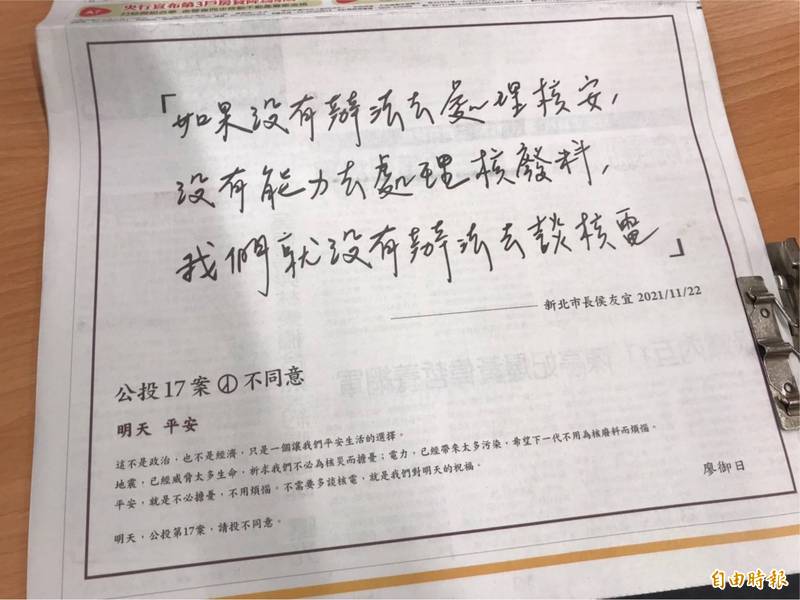 央行宣布第3戶房貸
「如果沒有辦法去處理核安，
沒有能力去處理核廢料，
我們就沒有辦法去談核電」
新北市長侯友宜 2021/11/22
公投17案 不同意
明天 平安
這不是政治，也不是經濟，只是一個讓我們平安生活的選擇。
地震，已經威脅太多生命，祈求我們不必為核災而擔憂；電力，已經帶來太多污染，希望下一代不用為核廢料而煩惱。
平安，就是不必擔憂，不用煩惱。不需要多談核電，就是我們對明天的祝福。
明天，公投第17案，請投不同意。
廖御日
自由時報